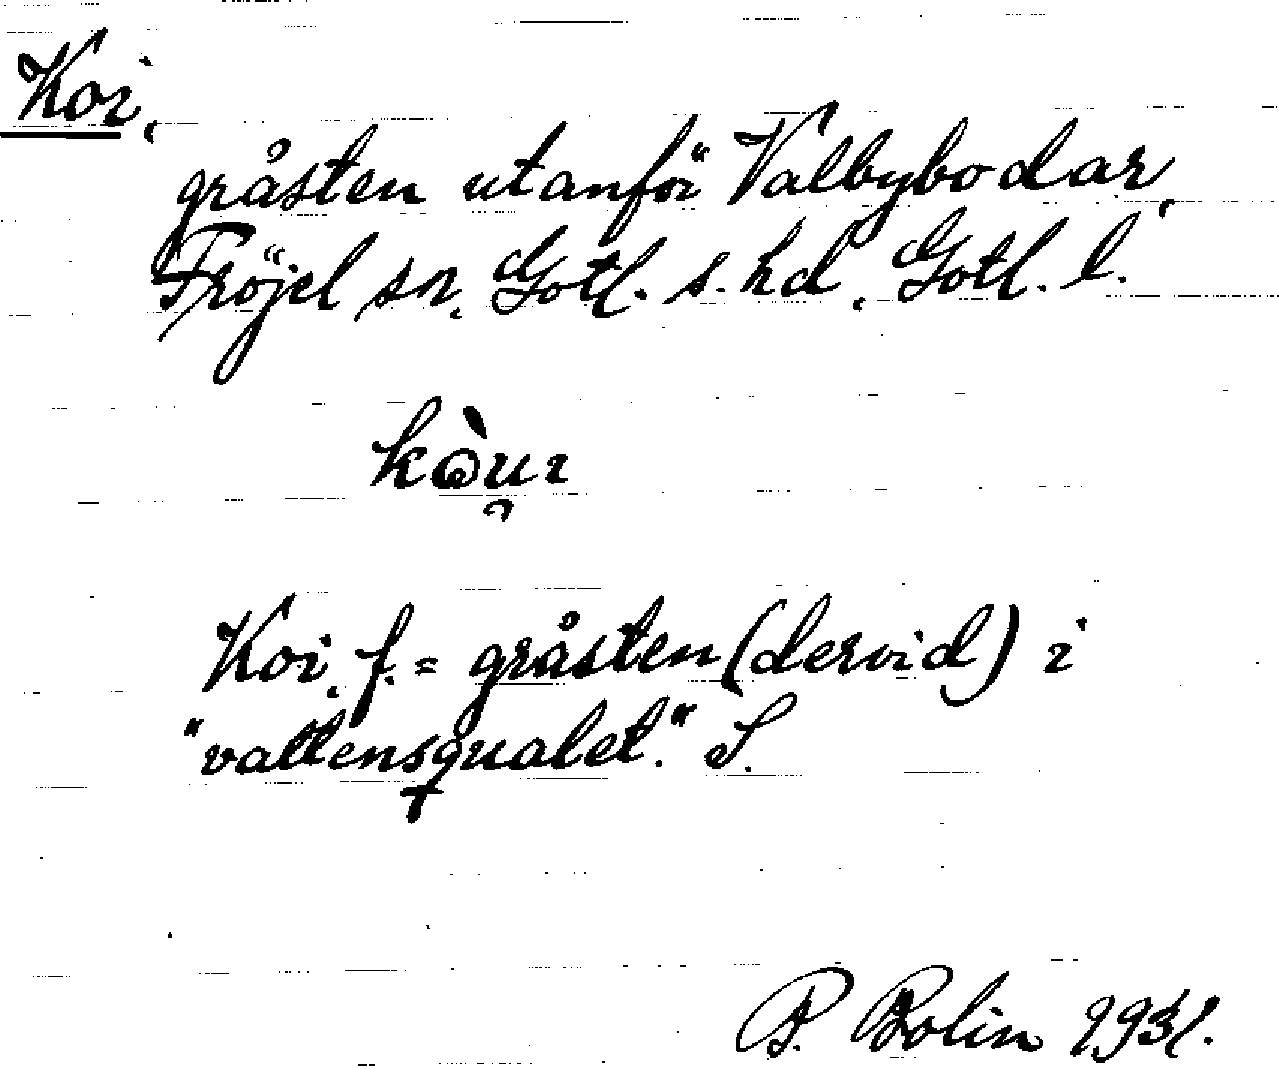 Koi,
gråsten utanför Valbybodar,
Fröjel sn, Gotl. s. hd, Gotl. l.
Koi, f. = gråsten (dervid) i
"vattensqualet." S.
P. Bolin 1931.